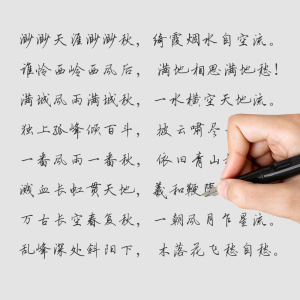 渺渺天涯渺渺秋，绮霞烟水自空流。
谁怜西岭西风后，满地相思满地愁！
满城风雨满城秋，一水横空天地流。
独上孤峰倾百斗，披云啸尽
一番风雨一番秋，依旧青山
溅血长虹贯天地，羲和鞭
万古长空春复秋，一朝风月乍星流。
乱峰深处斜阳下，木落花飞愁自愁。